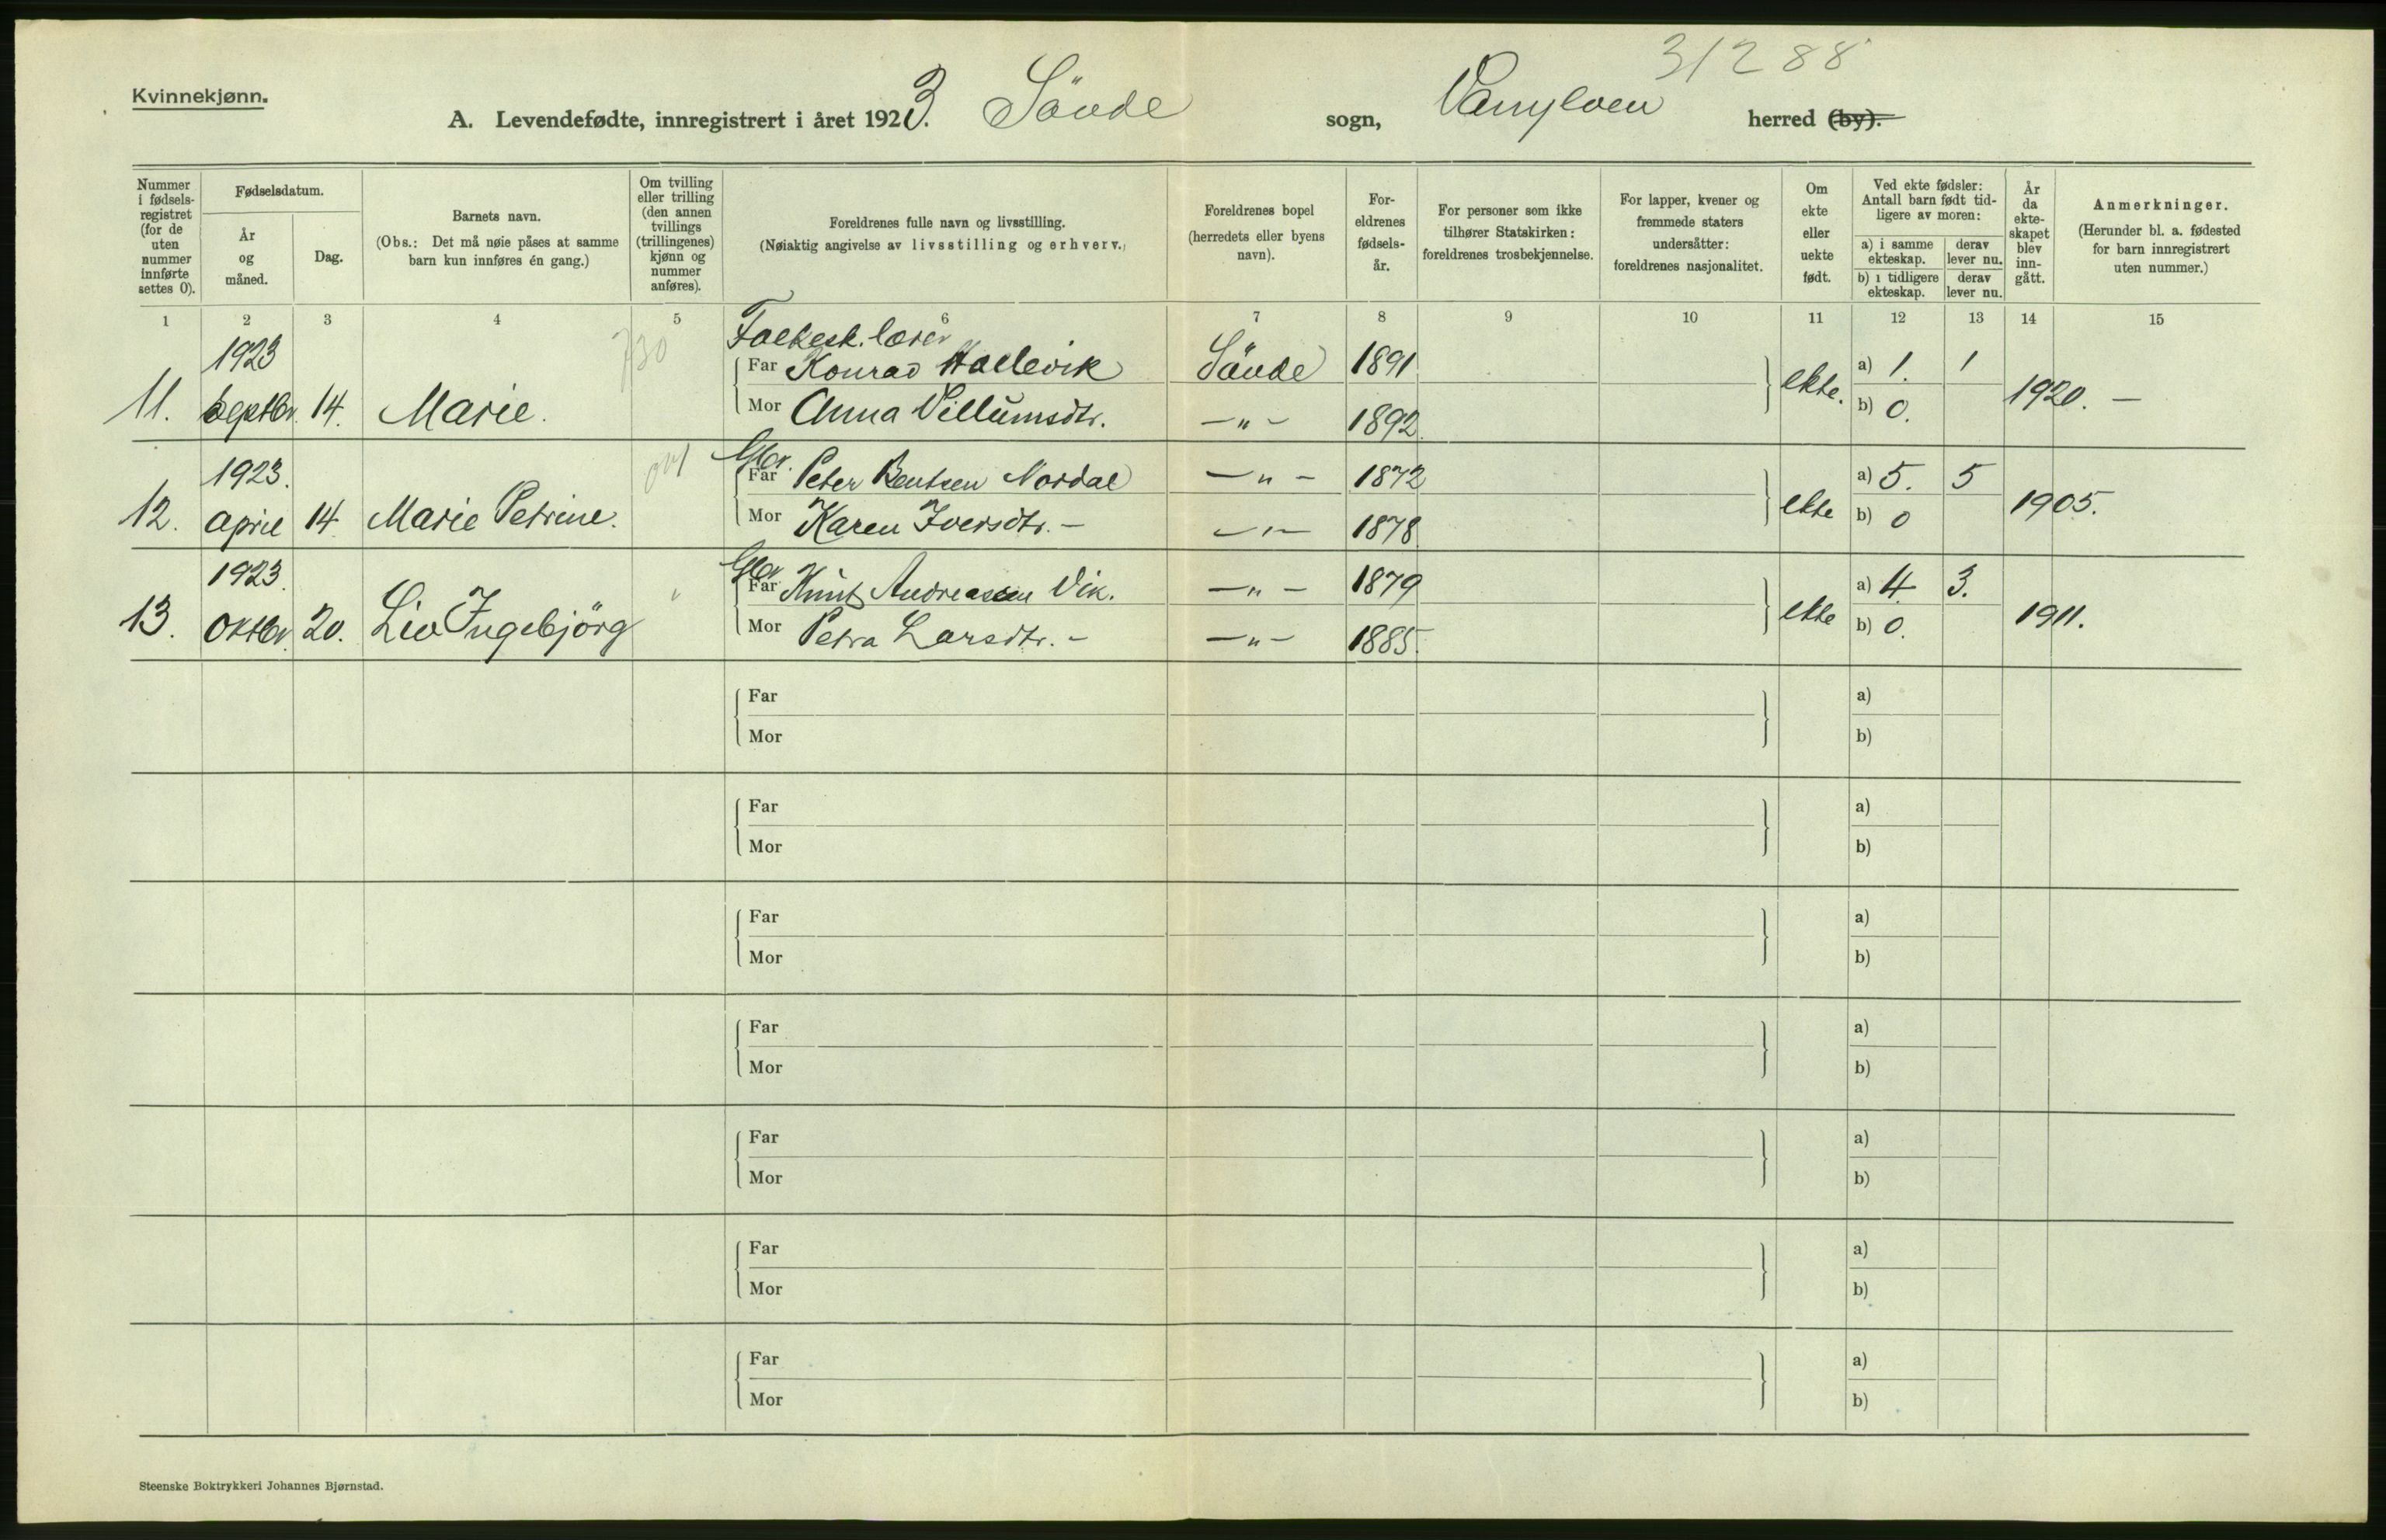 31288
Kvinnekjønn.
A. Levendefødte, innregistrert i året 1923. Sövde sogn, Vanylven herred (by).
Nummer i fødselsregistret (for de uten nummer innførte settes 0).
Fødselsdatum.
År og måned.
Dag.
Barnets navn.
(Obs.: Det må nøie påses at samme barn kun innføres én gang.)
Om tvilling eller trilling (den annen tvillings (trillingenes) kjønn og nummer anføres).
Foreldrenes fulle navn og livsstilling.
(Nøiaktig angivelse av livsstilling og erhverv.)
Foreldrenes bopel (herredets eller byens navn).
Foreldrenes fødselsår.
For personer som ikke tilhører Statskirken: foreldrenes trosbekjennelse.
For lapper, kvener og fremmede staters undersåtter: foreldrenes nasjonalitet.
Om ekte eller uekte født.
Ved ekte fødsler: Antall barn født tidligere av moren:
a) i samme ekteskap. derav lever nu.
b) i tidligere ekteskap. derav lever nu.
År da ekteskapet blev inngått.
Anmerkninger.
(Herunder bl. a. fødested for barn innregistrert uten nummer.)
1 2 3 4 5 6 7 8 9 10 11 12 13 14 15
730
Folkesk. lærer
1923 Far Konrad Hallevik Sövde 1891 a) 1. 1
11. Septbr. 14. Marie. Mor Anna Villumsdtr. — " — 1892 ekte. b) 0. 1920. —
Gbr.
1923. Far Peter Bentsen Nordal — " — 1872 a) 5. 5
12. April 14 Marie Petrine. Mor Karen Iversdtr. — — " — 1878 ekte b) 0 1905.
Gbr.
1923. Far Knut Andreassen Vik. — " — 1879 a) 4 3.
13. Oktbr. 20. Liv Ingebjörg " Mor Petra Larsdtr. — — " — 1885. ekte b) 0. 1911.
Far a)
Mor b)
Far a)
Mor b)
Far a)
Mor b)
Far a)
Mor b)
Far a)
Mor b)
Far a)
Mor b)
Far a)
Mor b)
Steenske Boktrykkeri Johannes Bjørnstad.